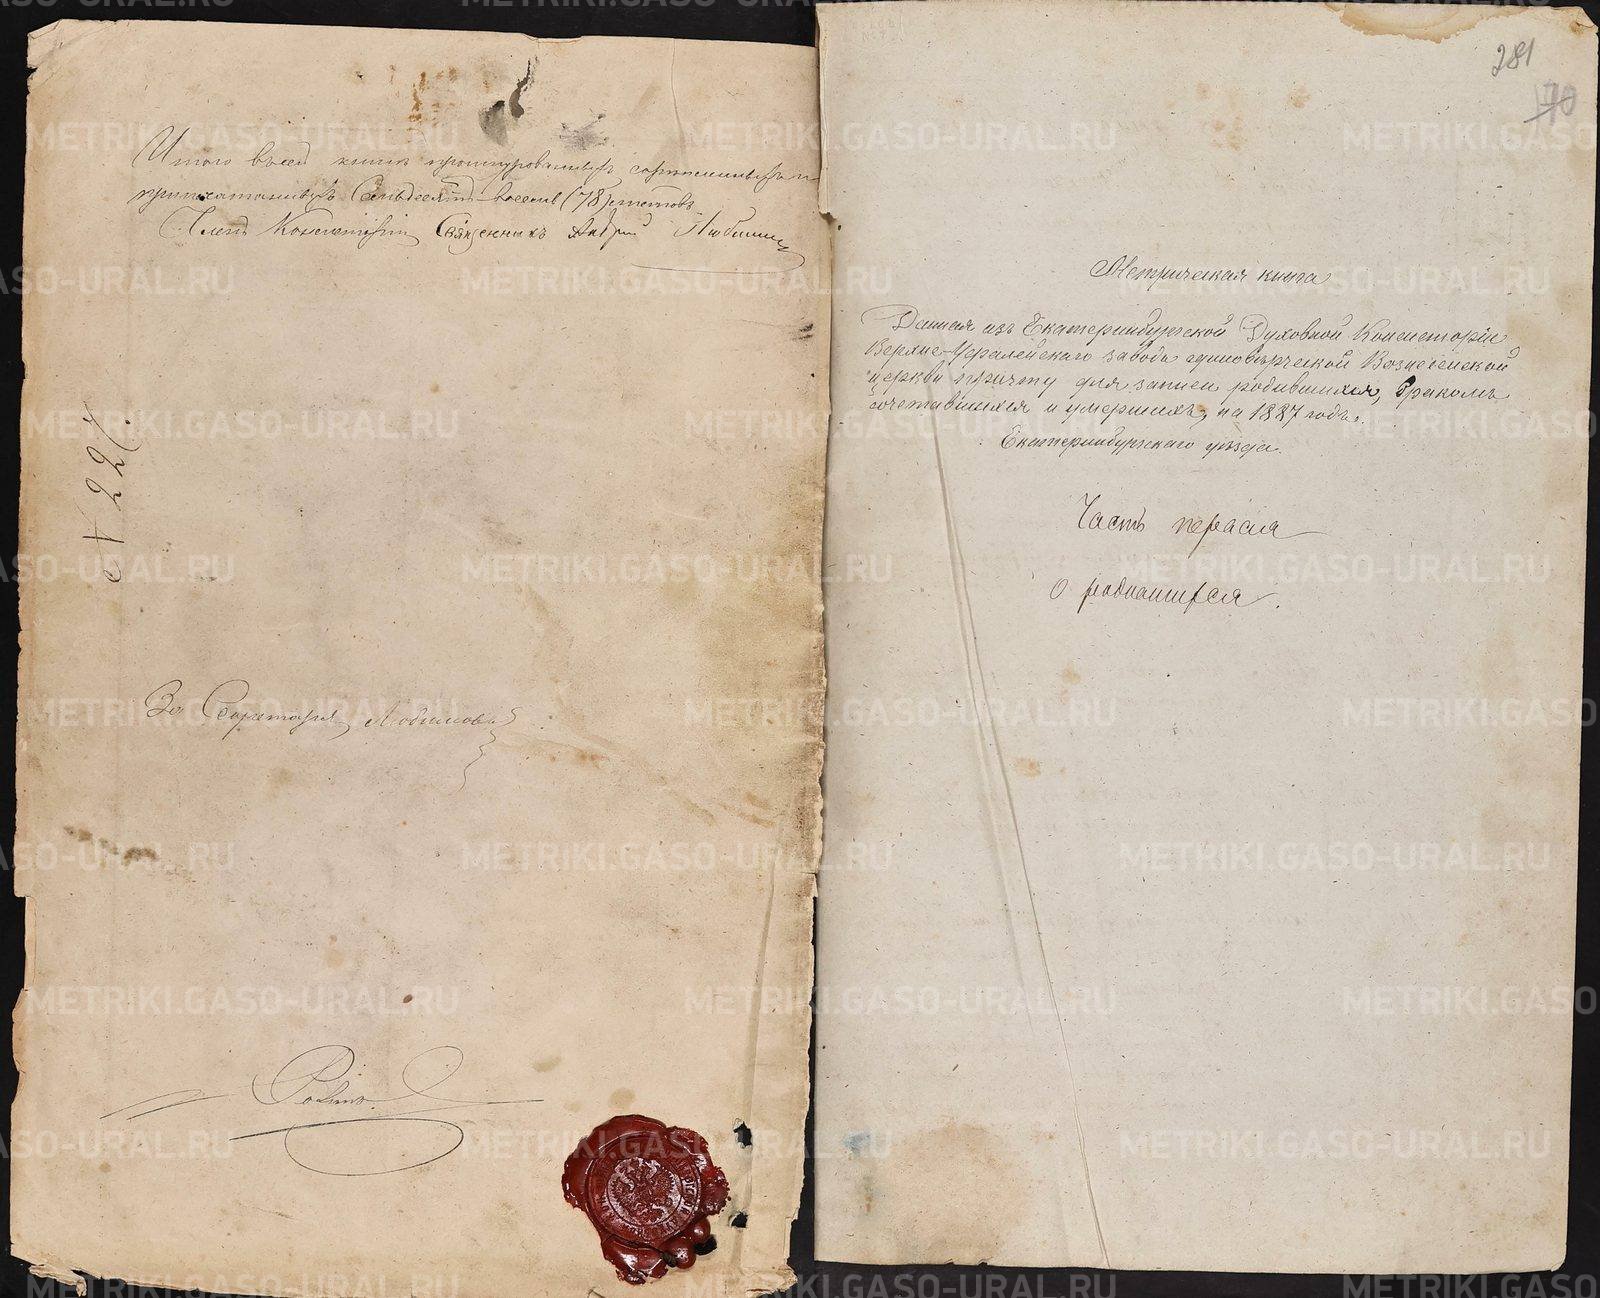 Итого въ сей книгѣ прошнурованныхъ, скрѣпленныхъ и
припечатанныхъ Семьдесятъ восемь (78) листовъ
Членъ Консисторіи Священникъ Андрей
N 227.
За Секретаря Любимовъ
281
170
Метрическая книга
Данная изъ Екатеринбургской Духовной Консисторіи
Верхне-Уфалейскаго завода единовѣрческой Вознесенской
церкви причту для записи родившихся, бракомъ
сочетавшихся и умершихъ, на 1887 годъ.
Екатеринбургскаго уѣзда.
Часть первая
О родившихся.
METRIKI.GASO-URAL.RU